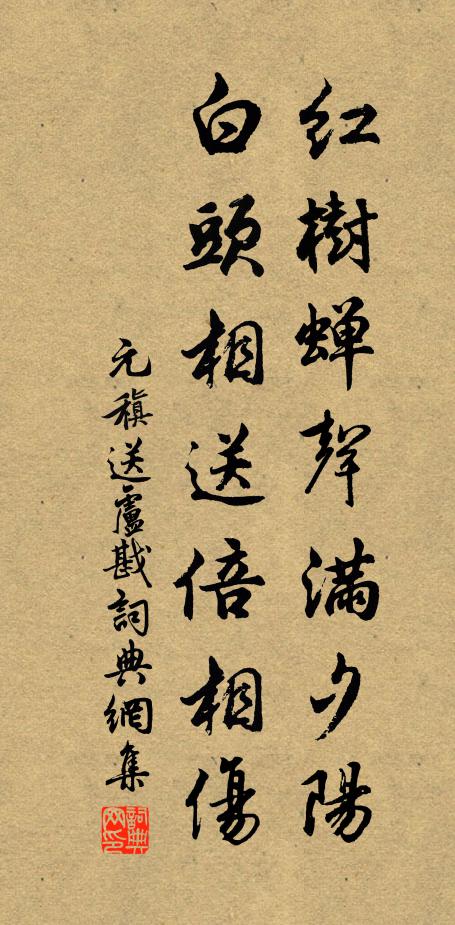 紅樹蟬聲滿夕陽
白頭相送倍相傷
元稹送盧戡詞典網集
詞典網印